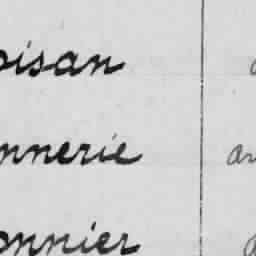 oisan
nnerie ar
onnier